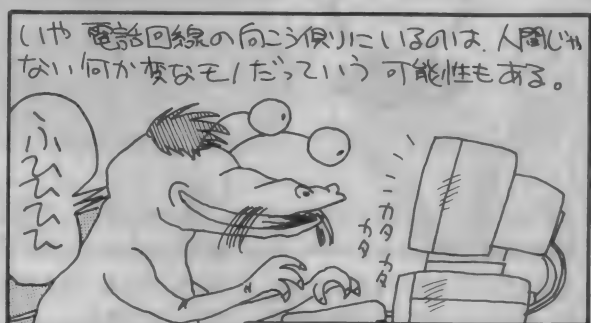 いや 電話回線の向こう側りにいるのは、人間じゃ
ない何か変なモノだっていう 可能性もある。
ふひひひひ
カタカタ
カタ